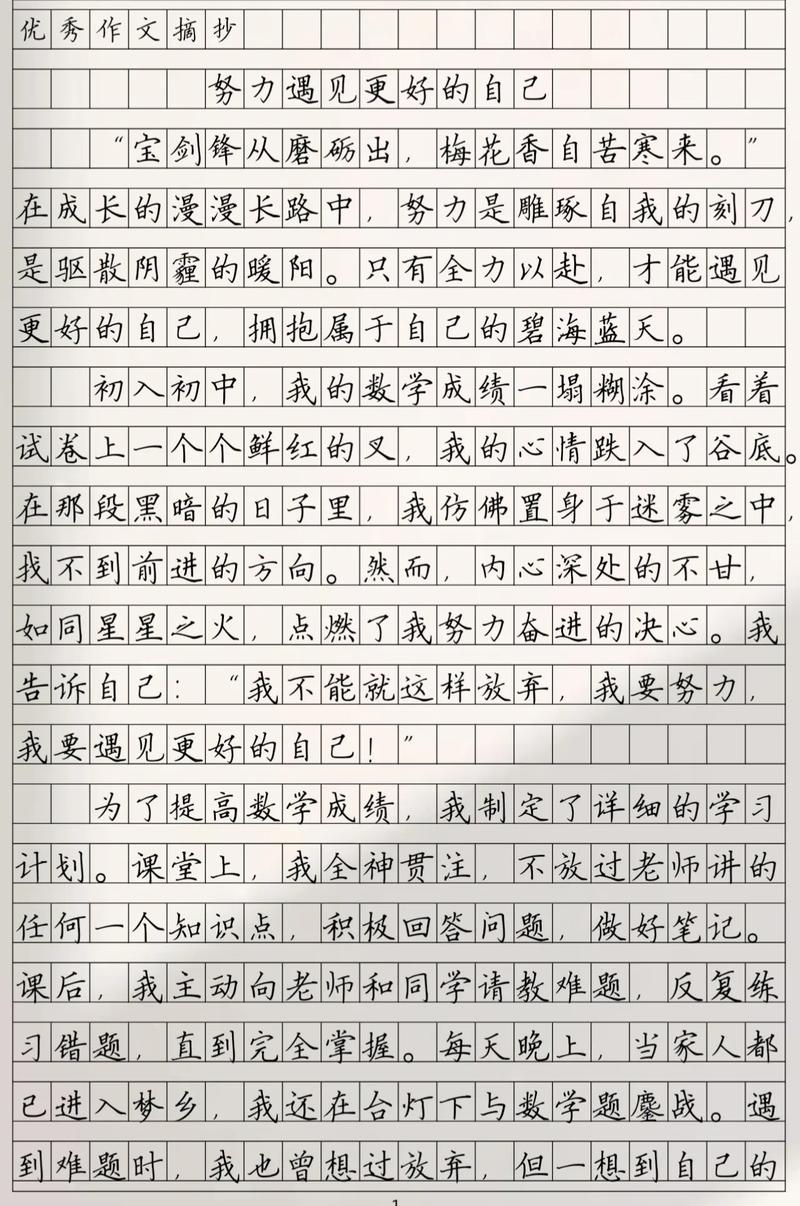 优秀作文摘抄
努力遇见更好的自己
“宝剑锋从磨砺出，梅花香自苦寒来。”
在成长的漫漫长路中，努力是雕琢自我的刻刀，
是驱散阴霾的暖阳。只有全力以赴，才能遇见
更好的自己，拥抱属于自己的碧海蓝天。
初入初中，我的数学成绩一塌糊涂。看着
试卷上一个个鲜红的叉，我的心情跌入了谷底。
在那段黑暗的日子里，我仿佛置身于迷雾之中，
找不到前进的方向。然而，内心深处的不甘，
如同星星之火，点燃了我努力奋进的决心。我
告诉自己：“我不能就这样放弃，我要努力，
我要遇见更好的自己！”
为了提高数学成绩，我制定了详细的学习
计划。课堂上，我全神贯注，不放过老师讲的
任何一个知识点，积极回答问题，做好笔记。
课后，我主动向老师和同学请教难题，反复练
习错题，直到完全掌握。每天晚上，当家人都
已进入梦乡，我还在台灯下与数学题鏖战。遇
到难题时，我也曾想过放弃，但一想到自己的
1